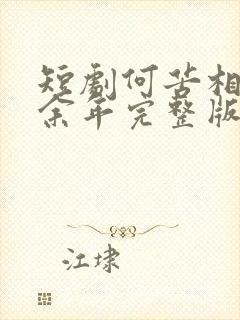 短剧何苦相
余年完整版
江埭